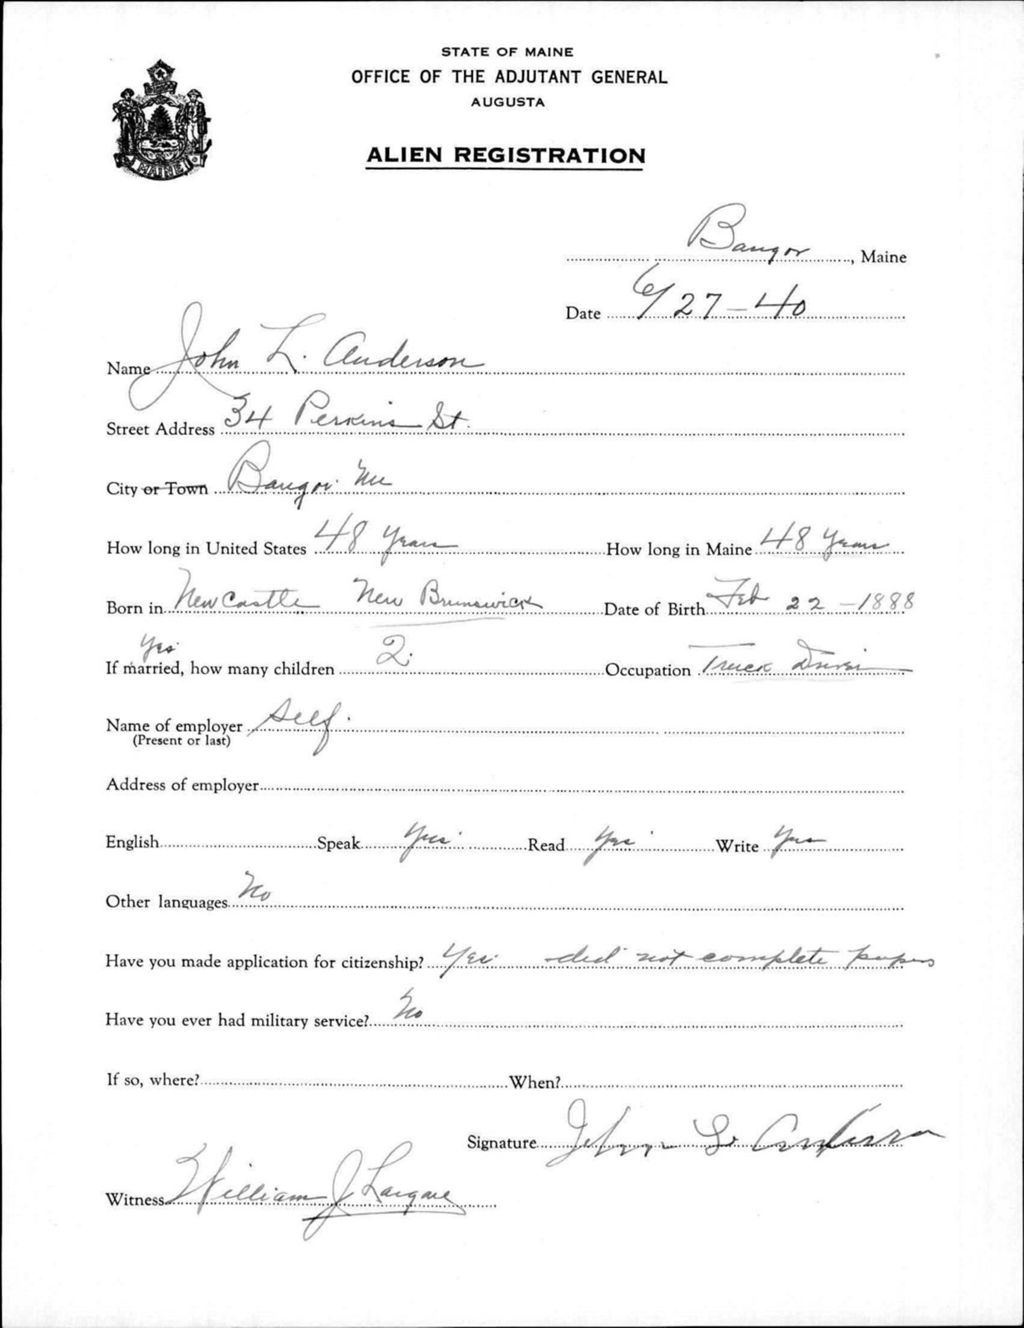 STATE OF MAINE
OFFICE OF THE ADJUTANT GENERAL
AUGUSTA
ALIEN REGISTRATION
MAINE
Bangor, Maine
Date 6/27-40
Name John L. Anderson
Street Address 34 Perkins St.
City or Town Bangor Me
How long in United States 48 Years How long in Maine 48 Years
Born in New Castle New Brunswick Date of Birth Feb 22-1888
Yes
If married, how many children 2. Occupation Truck Driver
Name of employer Self.
(Present or last)
Address of employer
English Speak Yes Read Yes Write Yes
Other languages No
Have you made application for citizenship? Yes did not complete papers
Have you ever had military service? No
If so, where? When?
Signature John L Anderson
Witness William J